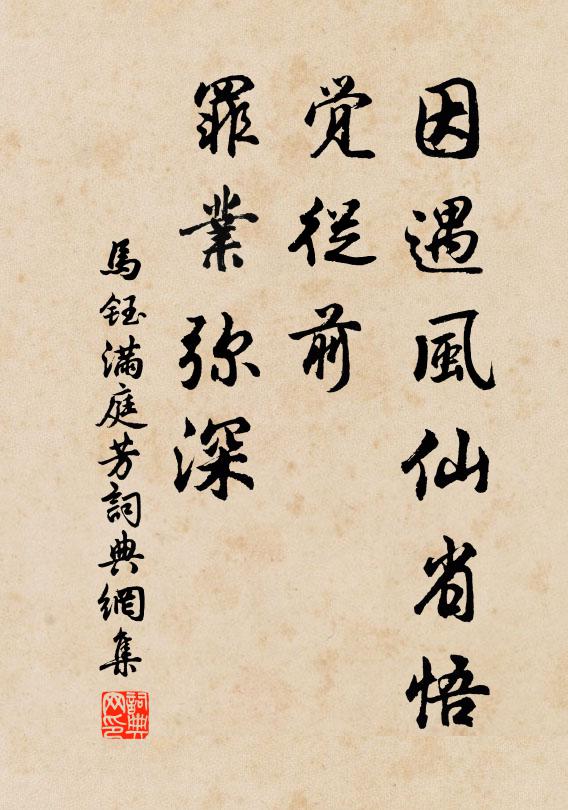 因遇風仙省悟
覚從前
罪業弥深
馬鈺滿庭芳詞典網集
詞典网印